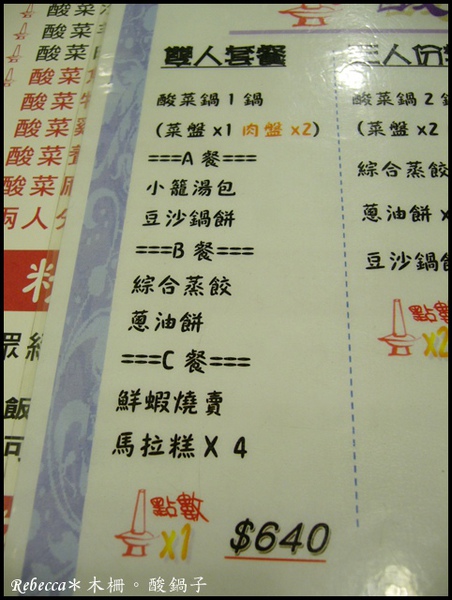 酸菜
酸菜
酸菜
酸菜
酸菜
酸菜
酸菜
酸菜
兩人分
雙人套餐
酸菜鍋1鍋
(菜盤x1 肉盤x2)
===A 餐===
小籠湯包
豆沙鍋餅
===B 餐===
綜合蒸餃
蔥油餅
===C 餐===
鮮蝦燒賣
馬拉糕X 4
點數
x1
$640
三人份
酸菜鍋2鍋
(菜盤x2
綜合蒸餃
蔥油餅x
豆沙鍋餅
點數
x2
Rebecca*木柵。酸鍋子